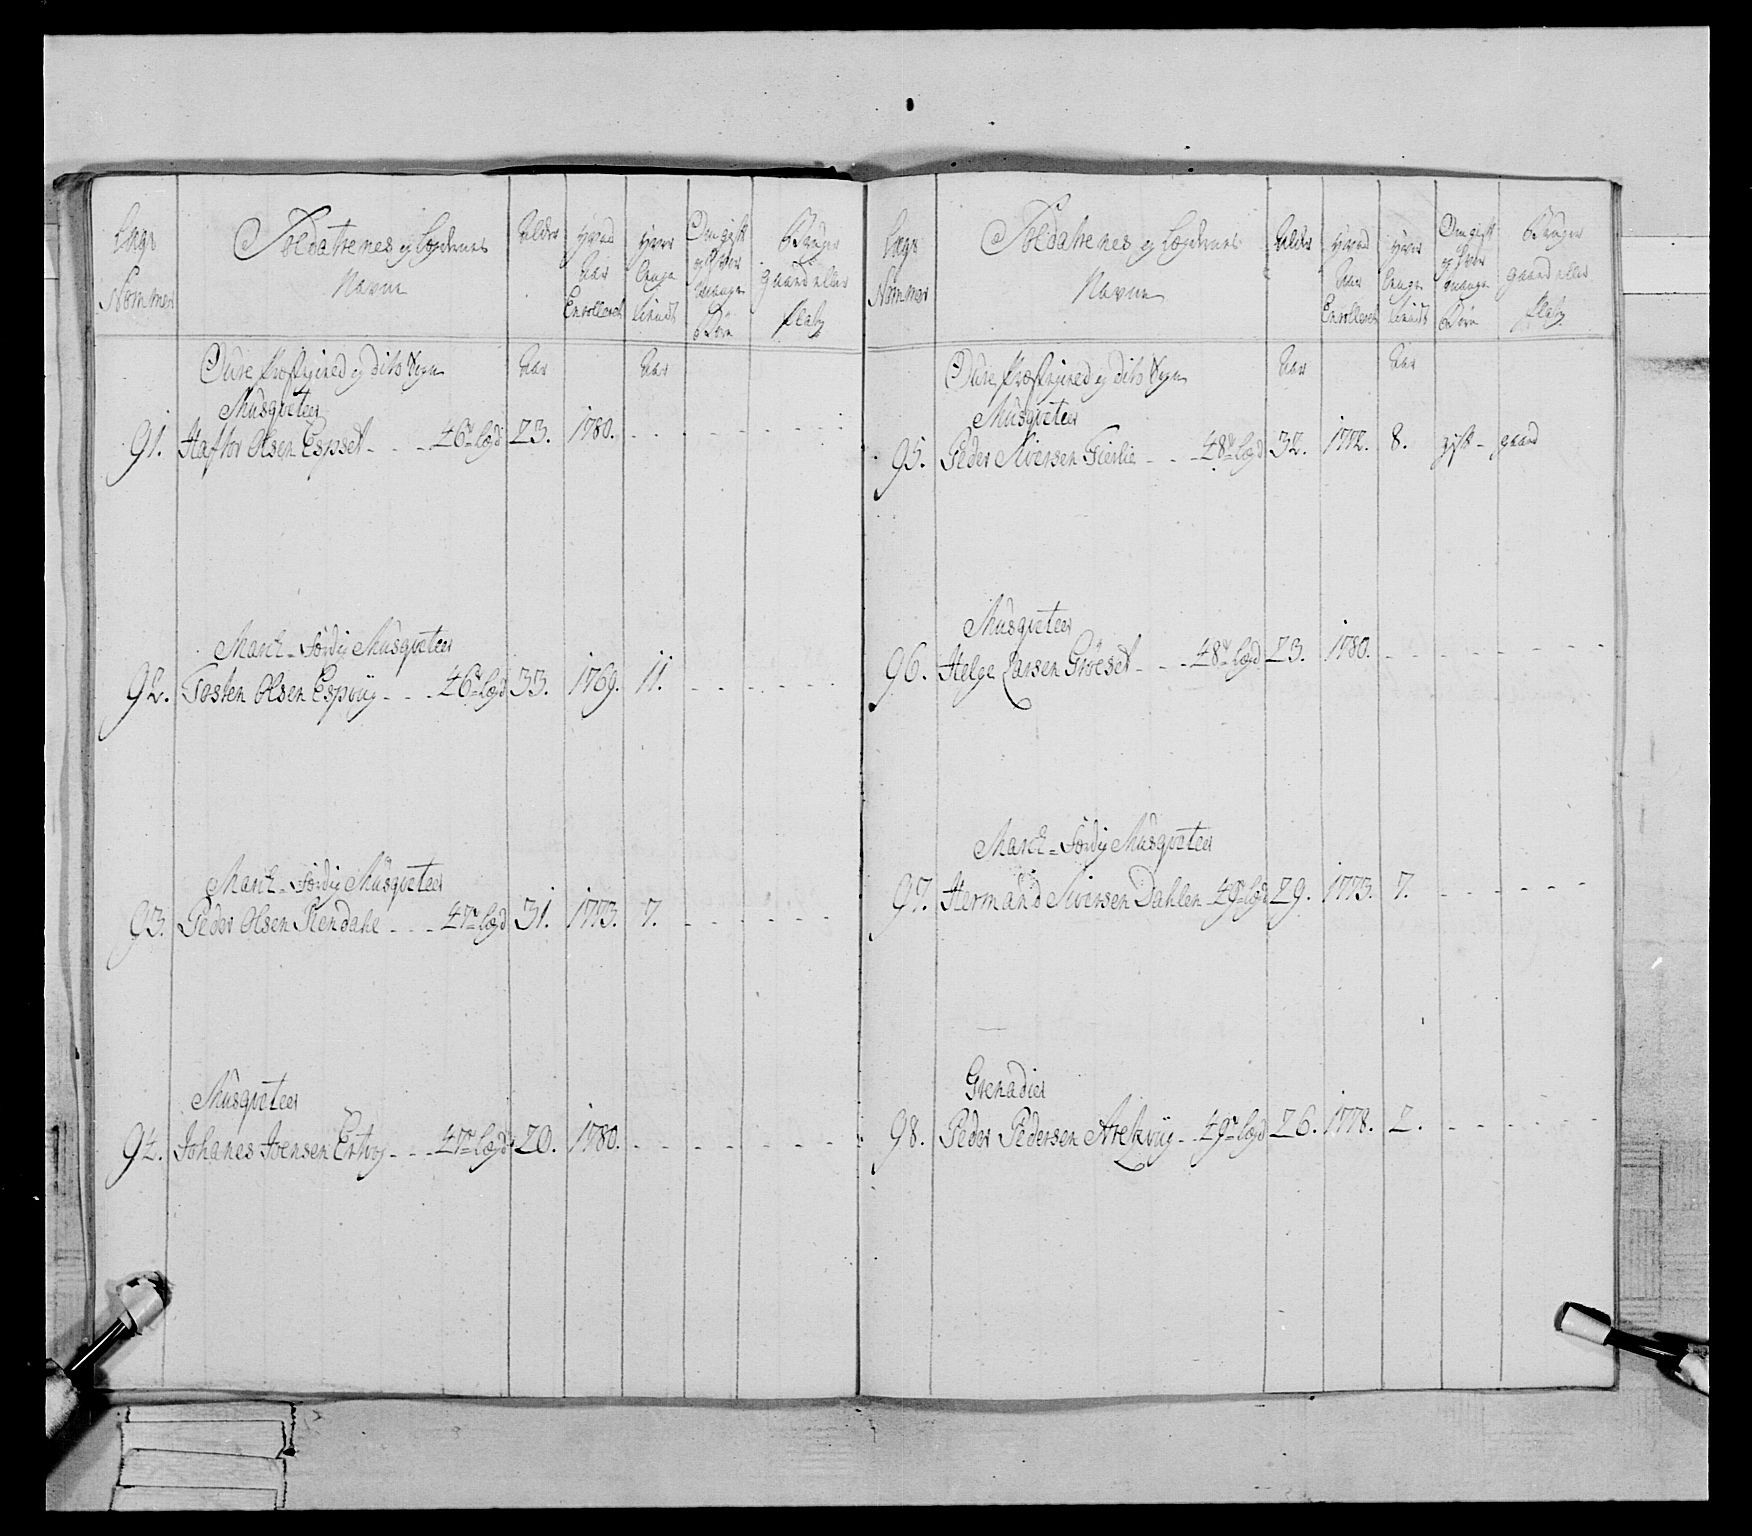 Lægs Nommer | Soldaternes og Lægdernes Navne | Alder | Hvad Aar Enrolleret | Hvor lenge tient | Om gift og hvor mange Børn | Bruger gaard eller Plads
Oure Præstegield og dito Sogn | Aar | Aar
Musqveteer
91. Haftor Olsen Espset - - - 46de Lægd 23. 1780. - - -
March-Færdig Musqveteer
92. Tosten Olsen Espvüg - - - 46de Lægd 33. 1769. 11. - - -
March-Færdig Musqveteer
93. Peder Olsen Stendahl - - - 47de Lægd 31. 1773. 7. - - -
Musqveteer
94. Johanes Joensen - - - 47de Lægd 20. 1780. - - -
Lægs Nommer | Soldaternes og Lægdernes Navne | Alder | Hvad Aar Enrolleret | Hvor lenge tient | Om gift og hvor mange Børn | Bruger gaard eller Plads
Oure Præstegield og dito Sogn | Aar | Aar
Musqveteer
95. Peder Siversen Fierlie - - - 48de Lægd 32. 1772. 8. gift - gaard
Musqveteer
96. Helge Larsen Gröeset - - - 48de Lægd 23. 1780. - - -
March-Færdig Musqveteer
97. Hermand Siversen Dahlen - 49de Lægd 29. 1773. 7. - - -
Grenadier
98. Peder Pedersen Arekvüg - - 49de Lægd 26. 1778. 2. - - -